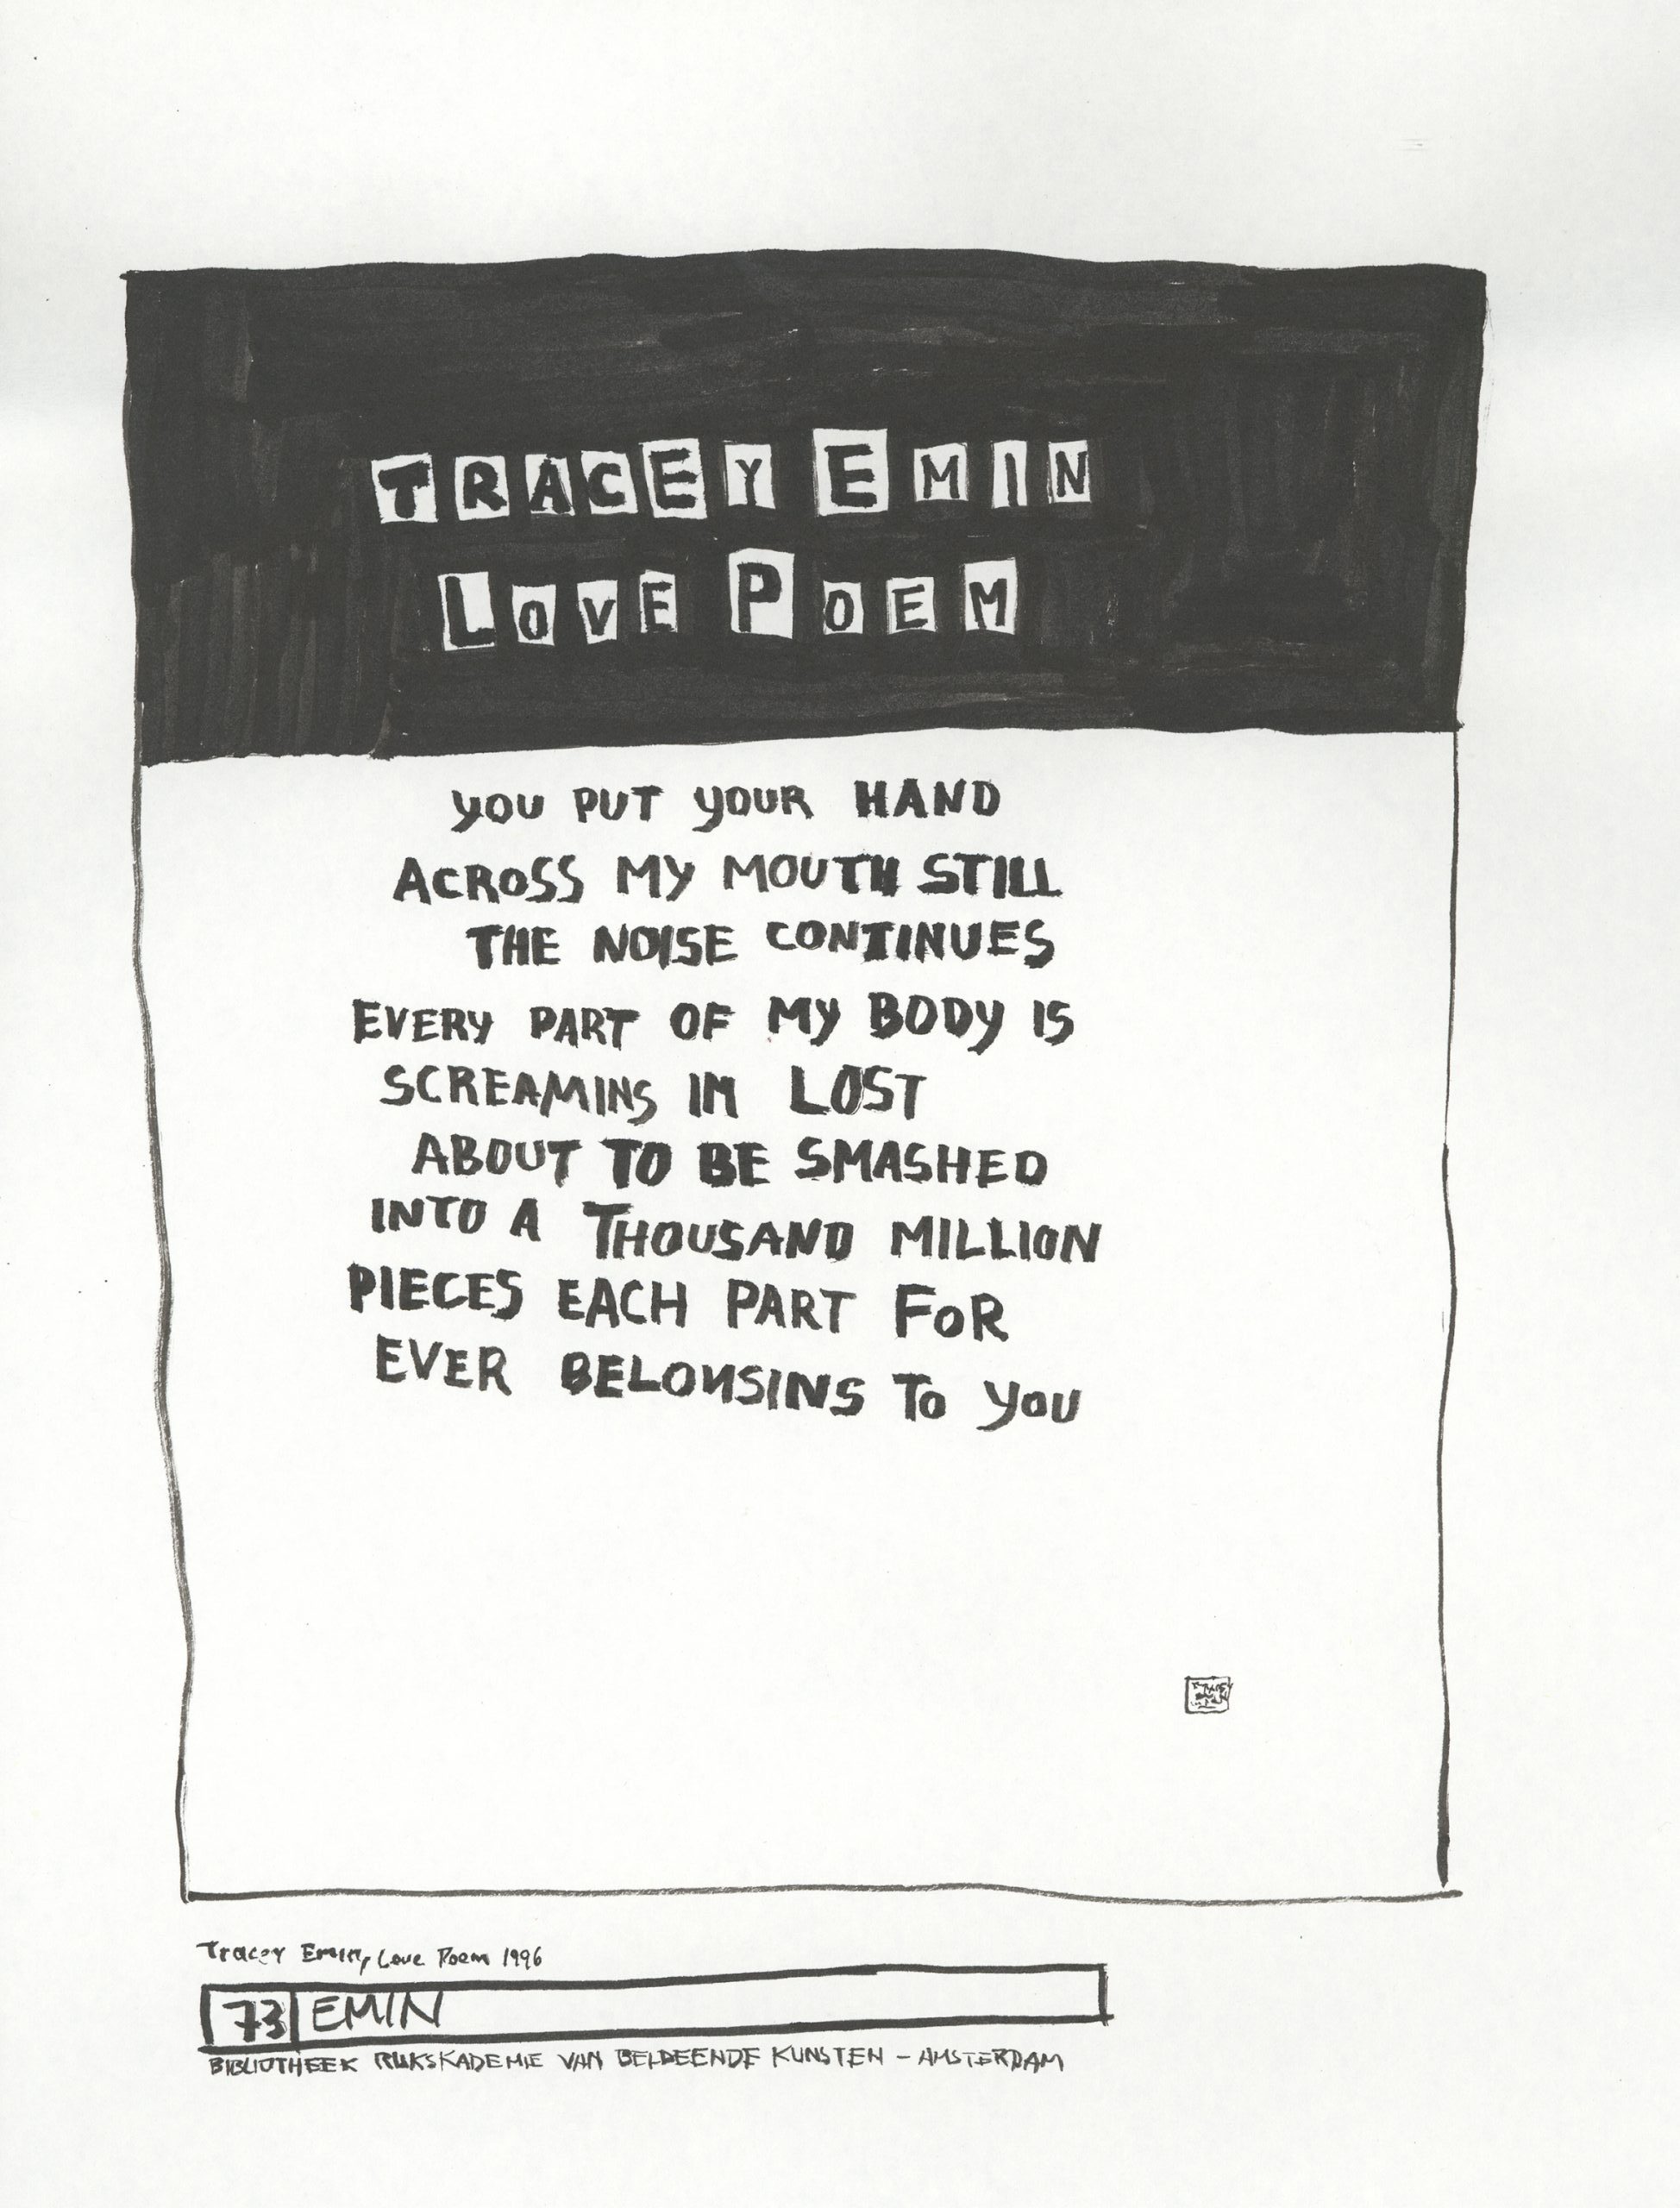 TRACEY EMIN
LOVE POEM
YOU PUT YOUR HAND
ACROSS MY MOUTH STILL
THE NOISE CONTINUES
EVERY PART OF MY BODY IS
SCREAMING IM LOST
ABOUT TO BE SMASHED
INTO A THOUSAND MILLION
PIECES EACH PART FOR
EVER BELONGING TO YOU
Tracey Emin, Love Poem 1996
73 EMIN
BIBLIOTHEEK RIJKSKADEMIE VAN BELDEENDE KUNSTEN - AMSTERDAM